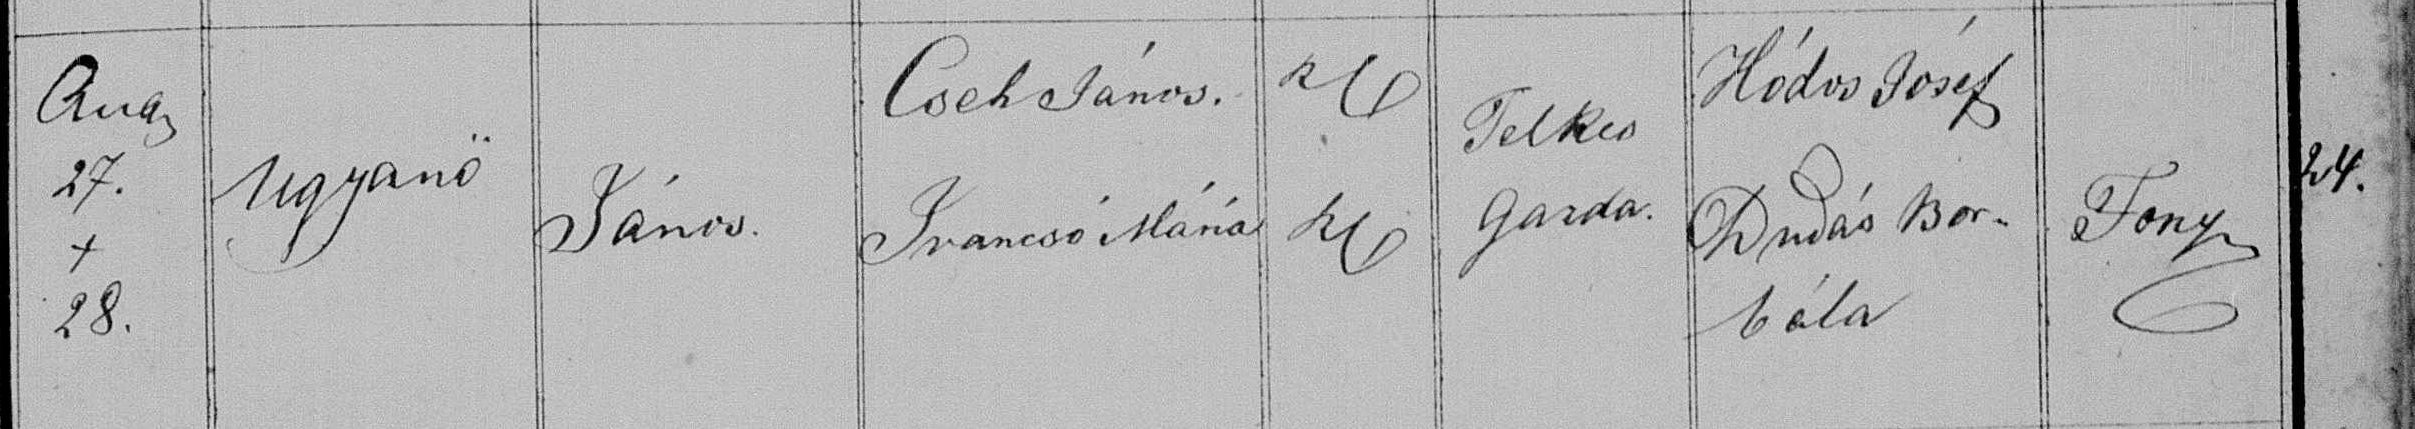 Aug
27.
+
28.
Ugyanö
János.
Cseh János.
Ivancsó Mária
Telkes
Gazda.
Hódos Jósef
Dudás Bor-
bála
Fony
24.